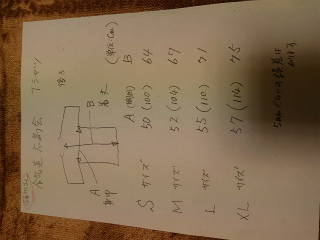 合気道 太島会 Tシャツ
(単位:cm)
A 身巾
B 着丈
A (胸囲) B
S サイズ 50 (100) 64
M サイズ 52 (104) 67
L サイズ 55 (110) 71
XL サイズ 57 (114) 75